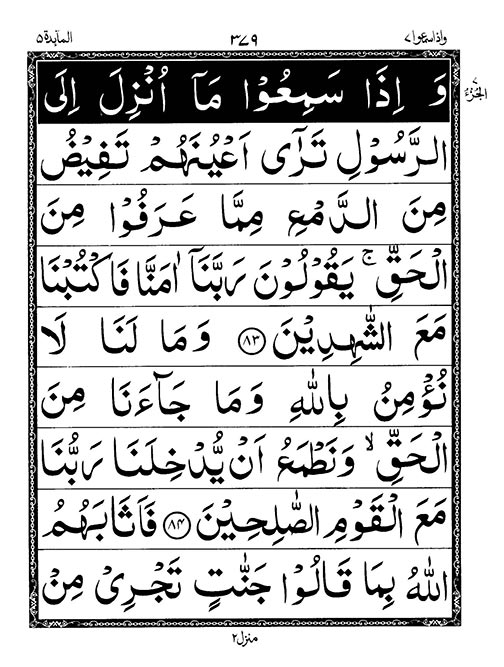 المآىدة ٥ ٣٧٩ واذاسمعوا ٧
الجزء ٧
وَ اِذَا سَمِعُوْا مَاۤ اُنْزِلَ اِلَى
الرَّسُوْلِ تَرٰۤى اَعْيُنَهُمْ تَفِيْضُ
مِنَ الدَّمْعِ مِمَّا عَرَفُوْا مِنَ
الْحَقِّ ۚ يَقُوْلُوْنَ رَبَّنَاۤ اٰمَنَّا فَاكْتُبْنَا
مَعَ الشّٰهِدِيْنَ ﴿۸۳﴾ وَ مَا لَنَا لَا
نُؤْمِنُ بِاللّٰهِ وَ مَا جَآءَنَا مِنَ
الْحَقِّ ۙ وَنَطْمَعُ اَنْ يُّدْخِلَنَا رَبُّنَا
مَعَ الْقَوْمِ الصّٰلِحِيْنَ ﴿۸۴﴾ فَاَثَابَهُمُ
اللّٰهُ بِمَا قَالُوْا جَنّٰتٍ تَجْرِيْ مِنْ
منزل ٢